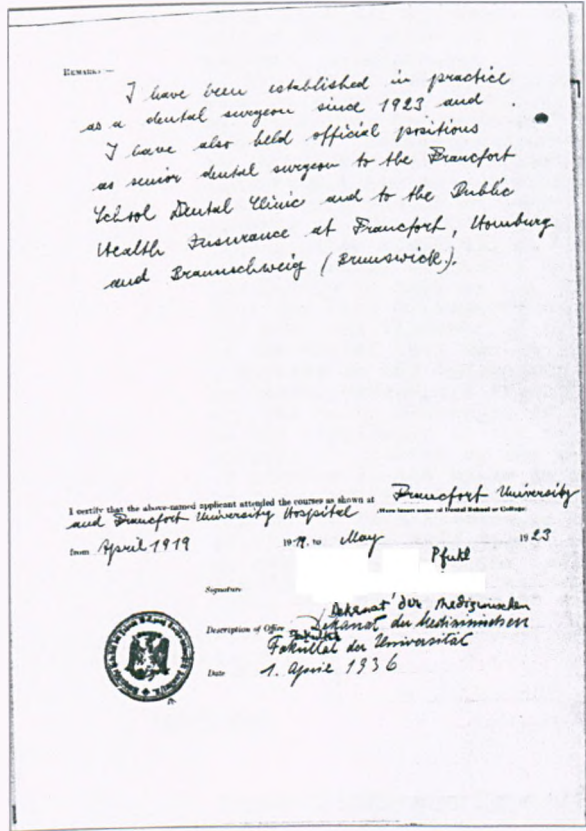 REMARKS —
I have been established in practice
as a dental surgeon since 1923 and
I have also held official positions
as senior dental surgeon to the Francfort
School Dental Clinic and to the Public
Health Insurance at Francfort, Homburg
and Braunschweig (Brunswick).
I certify that the above-named applicant attended the courses as shown at Francfort University
Here insert name of Dental School or College.
and Francfort University Hospital
from April 1919 19 19, to May 1923
Pfuhl
Signature
Dekanat der Medizinischen
Description of Office Dekanat der Medizinischen
Fakultät
Fakultät der Universität
Date 1. April 1936